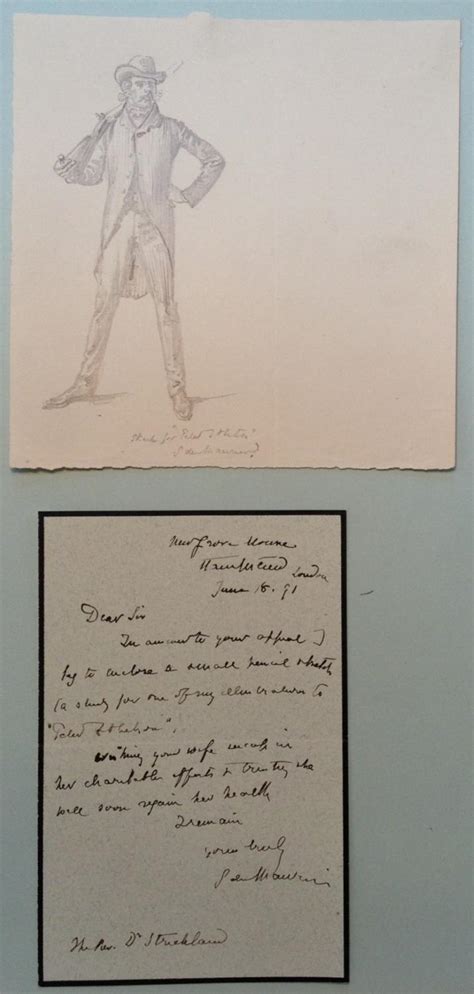 Sketch for "Peter Ibbetson"
G du Maurier
New Grove House
Hampstead London
June 18. 91
Dear Sir
In answer to your appeal I
beg to enclose a small pencil sketch
(a study for one of my illustrations to
"Peter Ibbetson".
Wishing your wife success in
her charitable efforts & trusting she
will soon regain her health
I remain
Yours truly
G du Maurier
The Rev. Dr Strickland